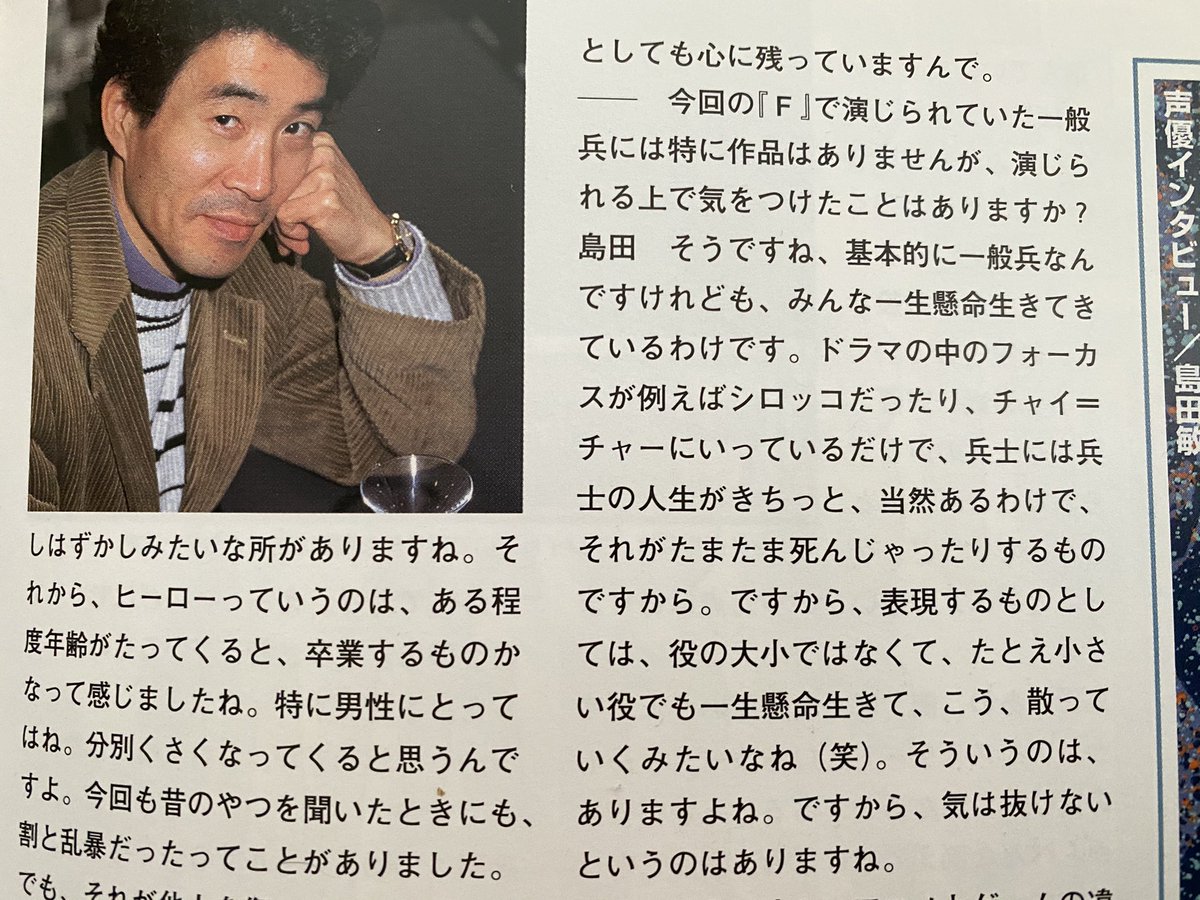 しはずかしみたいな所がありますね。そ
れから、ヒーローっていうのは、ある程
度年齢がたってくると、卒業するものか
なって感じましたね。特に男性にとって
はね。分別くさくなってくると思うんで
すよ。今回も昔のやつを聞いたときにも、
割と乱暴だったってことがありました。
でも、それが
としても心に残っていますんで。
―― 今回の『F』で演じられていた一般
兵には特に作品はありませんが、演じら
れる上で気をつけたことはありますか?
島田 そうですね、基本的に一般兵なん
ですけれども、みんな一生懸命生きてき
ているわけです。ドラマの中のフォーカ
スが例えばシロッコだったり、チャイ=
チャーにいっているだけで、兵士には兵
士の人生がきちっと、当然あるわけで、
それがたまたま死んじゃったりするもの
ですから。ですから、表現するものとし
ては、役の大小ではなくて、たとえ小さ
い役でも一生懸命生きて、こう、散って
いくみたいなね(笑)。そういうのは、
ありますよね。ですから、気は抜けない
というのはありますね。
声優インタビュー/島田敏